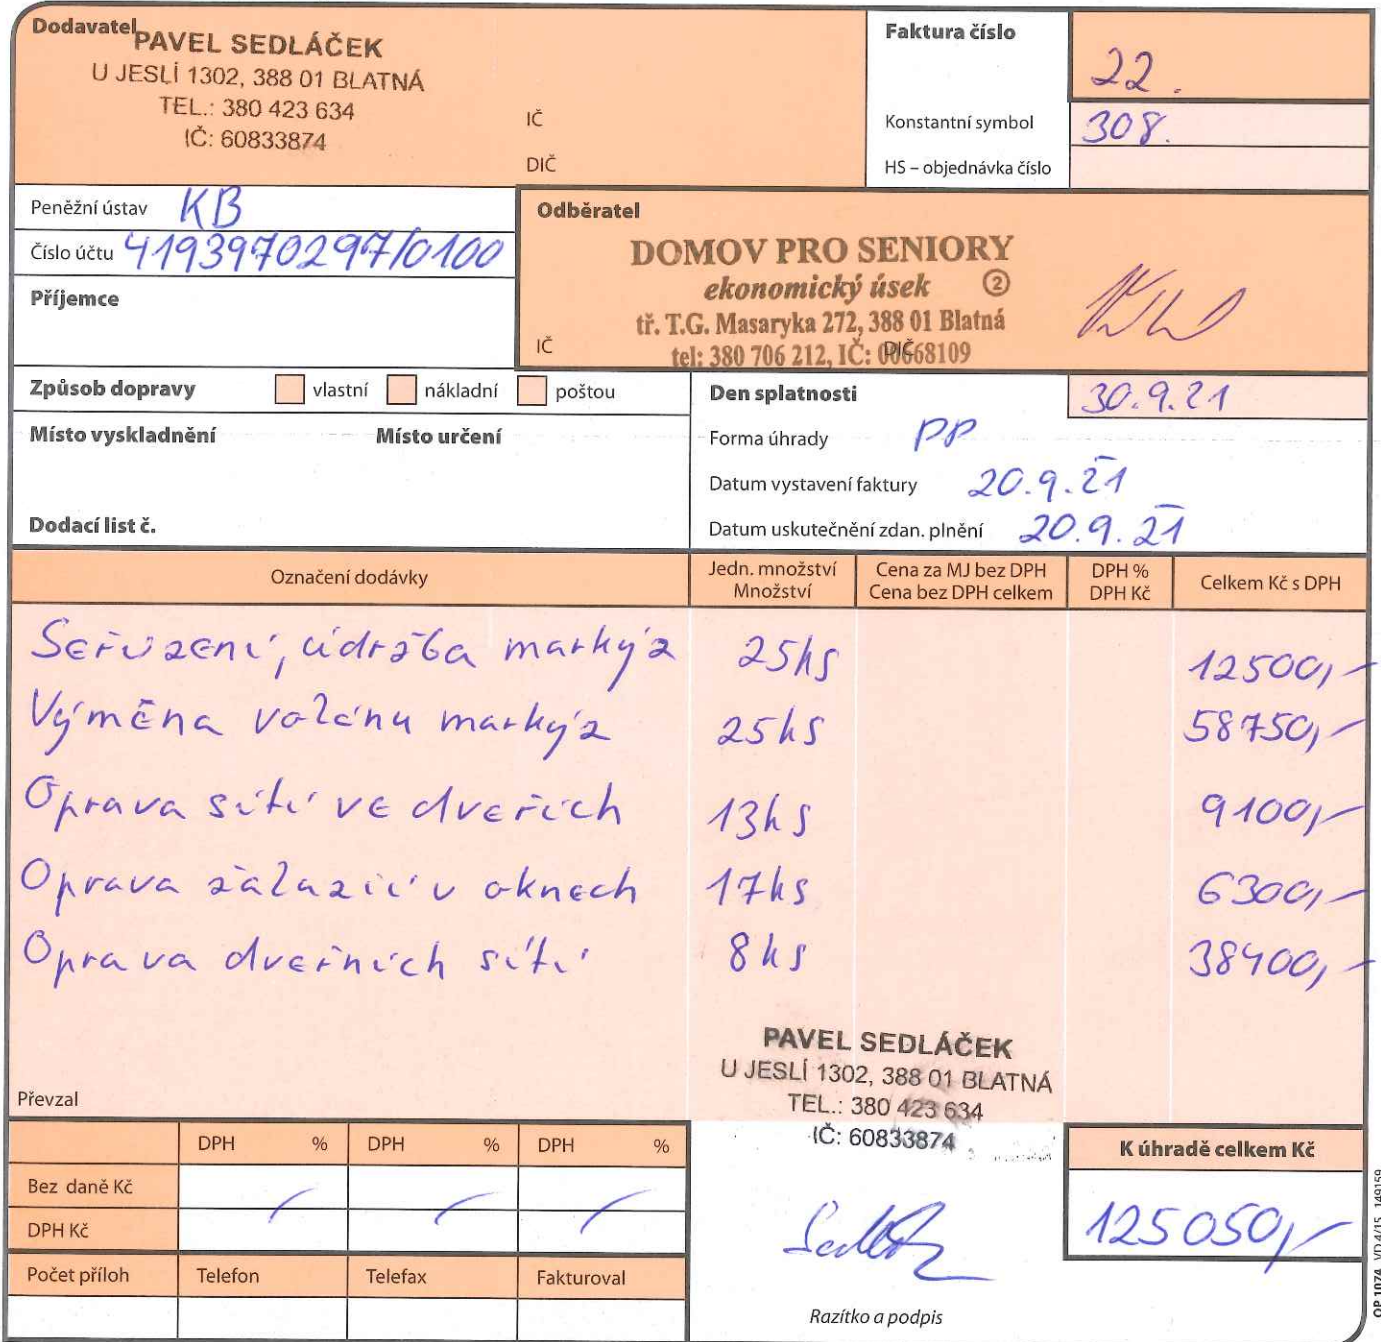 Dodavatel
PAVEL SEDLÁČEK
U JESLÍ 1302, 388 01 BLATNÁ
TEL.: 380 423 634
IČ: 60833874
IČ
DIČ
Faktura číslo 22.
Konstantní symbol 308.
HS – objednávka číslo
Peněžní ústav KB
Číslo účtu 4193970297/0100
Příjemce
Odběratel
DOMOV PRO SENIORY
ekonomický úsek 2
tř. T.G. Masaryka 272, 388 01 Blatná
tel: 380 706 212, IČ: 00668109
IČ DIČ
Způsob dopravy vlastní nákladní poštou
Místo vyskladnění Místo určení
Dodací list č.
Den splatnosti 30.9.21
Forma úhrady PP
Datum vystavení faktury 20.9.21
Datum uskutečnění zdan. plnění 20.9.21
Označení dodávky Jedn. množství Množství Cena za MJ bez DPH Cena bez DPH celkem DPH % DPH Kč Celkem Kč s DPH
Seřízení, údržba markýz 25ks 12500,-
Výměna volánu markýz 25ks 58750,-
Oprava sítí ve dveřích 13ks 9100,-
Oprava žaluzií v oknech 17ks 6300,-
Oprava dveřních sítí 8ks 38400,-
PAVEL SEDLÁČEK
U JESLÍ 1302, 388 01 BLATNÁ
TEL.: 380 423 634
IČ: 60833874
Převzal
DPH % DPH % DPH %
Bez daně Kč
DPH Kč
Počet příloh Telefon Telefax Fakturoval
K úhradě celkem Kč
125050,-
Razítko a podpis
OP 1074 VD 4/15 149159